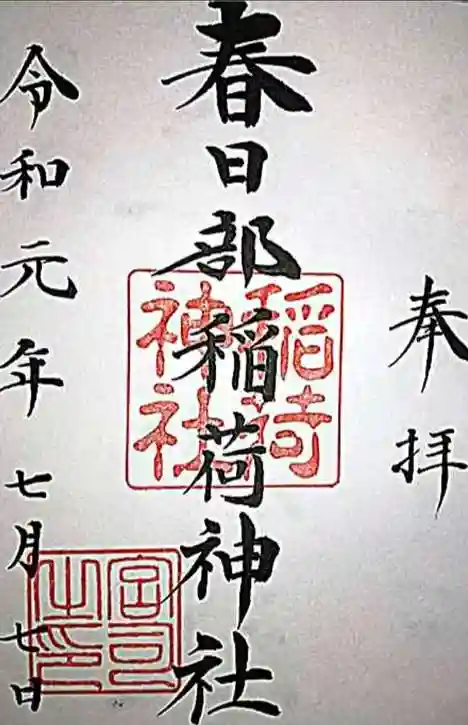 奉拝
春日部稲荷神社
稲荷神社
令和元年七月七日
宮司之印